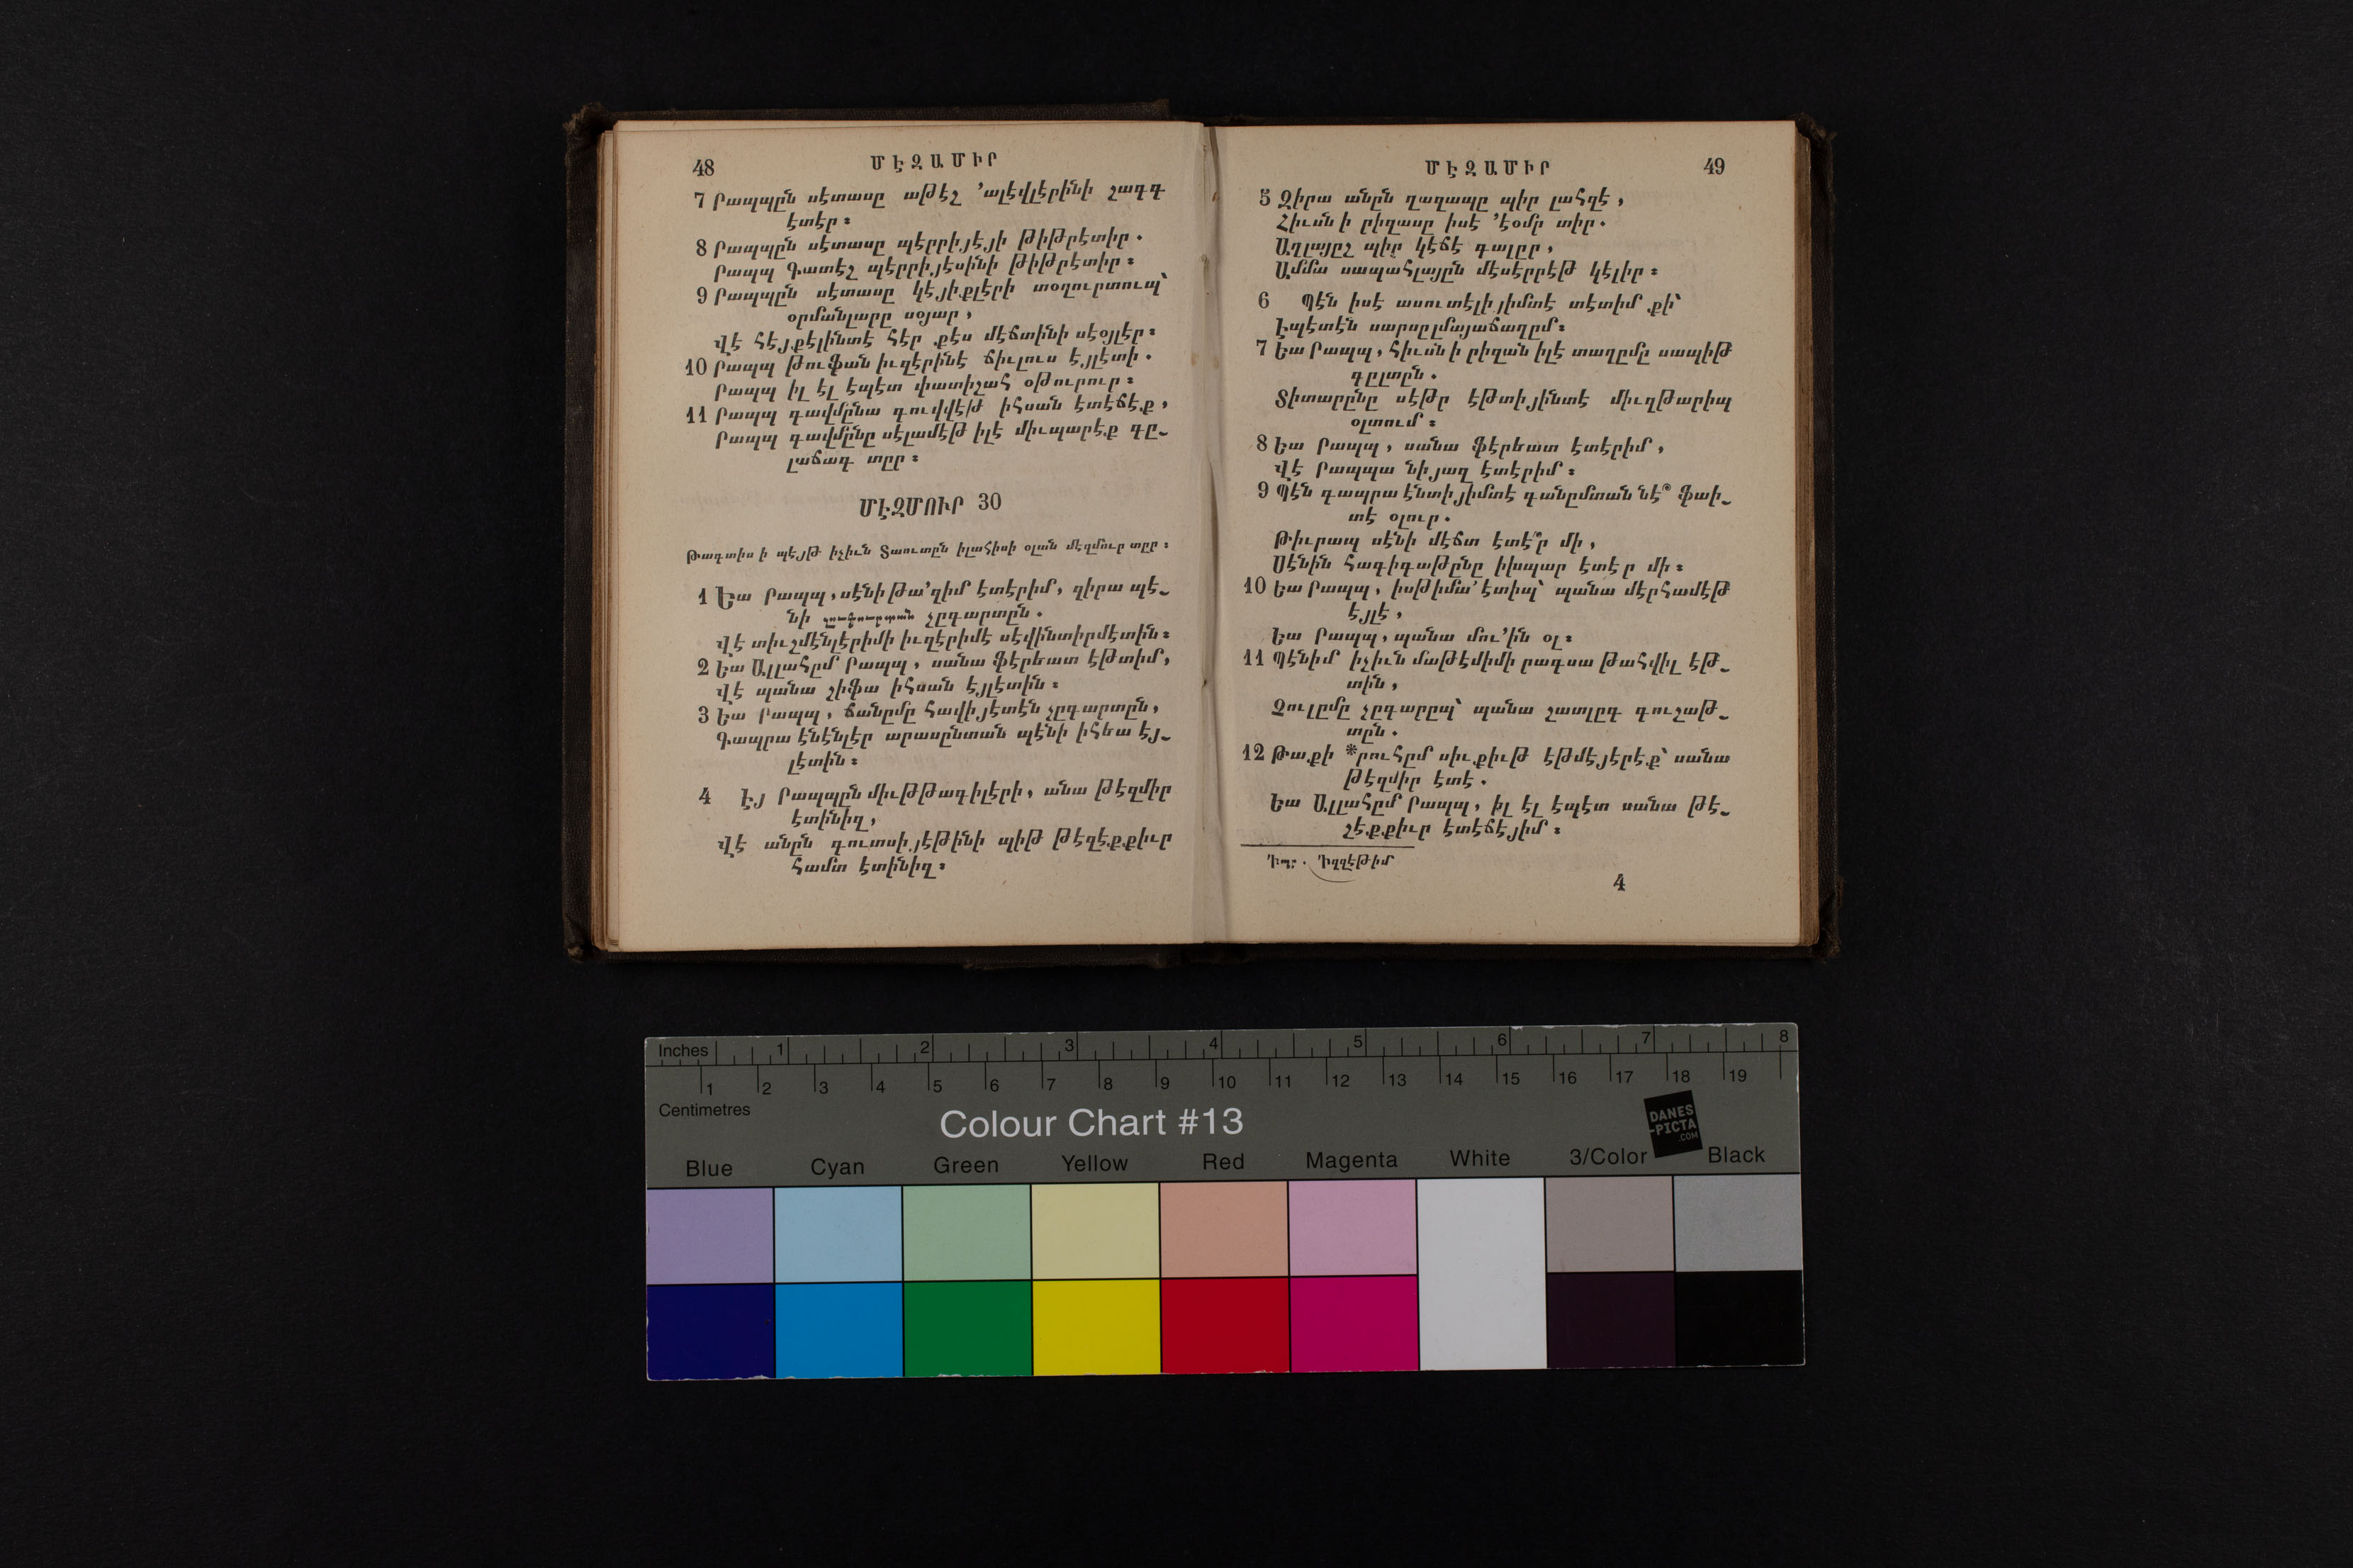 48
ՄԷԶԱՄԻՐ
7 Րապպըն սէտասը աթէշ ՚ալէվլէրինի շագգ
էտէր։
8 Րապպըն սէտասը պէրրիյէյի թիթրէտիր.
Րապպ Գատէշ պէրրիյէսինի թիթրէտիր։
9 Րապպըն սէտասը կէյիքլէրի տօղուրտուպ՝
օրմանլարը սօյար,
Վէ հէյքէլինտէ հէր քէս մէճտինի սէօյլէր։
10 Րապպ թուֆան իւզէրինէ ճիւլուս էյլէտի.
Րապպ իլ էլ էպէտ փատիշահ օթուրուր։
11 Րապպ գավմընա գուվվէթ իհսան էտէճէք,
Րապպ գավմընը սէլամէթ իլէ միւպարէք գը֊
լաճագ տըր։
ՄԷԶՄՈՒՐ 30
Թագտիս ի պէյթ իչիւն Տաուտըն իլահիսի օլան մէզմուր տըր։
1 Եա Րապպ, սէնի թա՚զիմ էտէրիմ, զիրա պէ֊
նի չըգարտըն.
Վէ տիւշմէնլէրիմի իւզէրիմէ սէվինտիրմէտին։
2 Եա Ալլահըմ Րապպ, սանա ֆէրեատ էթտիմ,
Վէ պանա շիֆա իհսան էյլէտին։
3 Եա Րապպ, ճանըմը հավիյէտէն չըգարտըն,
Գապրա էնէնլէր արասընտան պէնի իհեա էյ֊
լէտին։
4 Էյ Րապպըն միւթթագիլէրի, անա թէզմիր
էտինիզ,
Վէ անըն գուտսիյէթինի պիթ թէզէքքիւր
համտ էտինիզ։
ՄԷԶԱՄԻՐ
49
5 Զիրա անըն ղազապը պիր լահզէ,
Հիւսն ի րիզասը իսէ ՚էօմր տիր.
Աղլայըշ պիր կէճէ գալըր,
Ամմա սապահլայըն մէսէրրէթ կէլիր։
6 Պէն իսէ ասուտէլիյիմտէ տէտիմ քի՝
Էպէտէն սարսըլմայաճաղըմ։
7 Եա Րապպ, հիւսն ի րիզան իլէ տաղըմը սապիթ
գըլտըն.
Տիտարընը սէթր էթտիյինտէ միւզթարիպ
օլտում։
8 Եա Րապպ, սանա ֆէրեատ էտէրիմ,
Վէ Րապպա նիյազ էտէրիմ։
9 Պէն գապրա էնտիյիմտէ գանըմտան նէ՞ ֆաի֊
տէ օլուր.
Թիւրապ սէնի մէճտ էտէ՞ր մի,
Սէնին հագիգաթընը իխպար էտէր մի։
10 Եա Րապպ, իսթիմա՚ էտիպ՝ պանա մէրհամէթ
էյլէ,
Եա Րապպ, պանա մու՚ին օլ։
11 Պէնիմ իչիւն մաթէմիմի րագսա թահվիլ էթ֊
տին,
Չուլըմը չըգարըպ՝ պանա շատլըգ գուշաթ֊
տըն.
12 Թաքի *րուհըմ սիւքիւթ էթմէյէրէք՝ սանա
թէզմիր էտէ.
Եա Ալլահըմ Րապպ, իլ էլ էպէտ սանա թէ֊
շէքքիւր էտէճէյիմ։
Իպր. Իզզէթիմ
4
Inches 1 2 3 4 5 6 7 8
1 2 3 4 5 6 7 8 9 10 11 12 13 14 15 16 17 18 19
Centimetres
Colour Chart #13
DANES
-PICTA
.COM
Blue Cyan Green Yellow Red Magenta White 3/Color Black